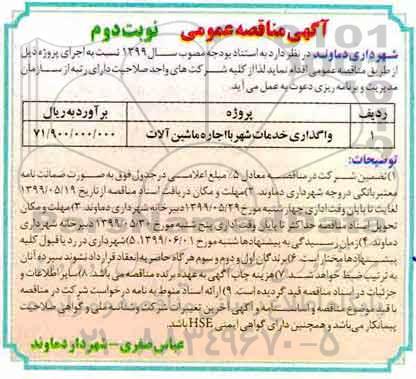 آگهی مناقصه عمومی نوبت دوم
شهرداری دماوند در نظر دارد به استناد بودجه مصوب سال ۱۳۹۹ نسبت به اجرای پروژه ذیل
از طریق مناقصه عمومی اقدام نماید لذا از کلیه شرکت های واجد صلاحیت دارای رتبه از سازمان
مدیریت و برنامه ریزی دعوت به عمل می آید.
ردیف پروژه برآورد به ریال
۱ واگذاری خدمات شهر با اجاره ماشین آلات ۷۱/۹۰۰/۰۰۰/۰۰۰
توضیحات:
۱) تضمین شرکت در مناقصه معادل ۵٪ مبلغ اعلامی در جدول فوق به صورت ضمانت نامه
معتبر بانکی در وجه شهرداری دماوند. ۲) مهلت و مکان دریافت اسناد مناقصه از تاریخ ۱۳۹۹/۰۵/۱۹
لغایت تا پایان وقت اداری چهارشنبه مورخ ۱۳۹۹/۰۵/۲۹ دبیرخانه شهرداری دماوند. ۳) مهلت و مکان
تحویل اسناد مناقصه حداکثر تا پایان وقت اداری پنج شنبه مورخ ۱۳۹۹/۰۵/۳۰ دبیرخانه شهرداری
دماوند. ۴) زمان رسیدگی به پیشنهادها شنبه مورخ ۱۳۹۹/۰۶/۰۱. ۵) شهرداری در رد یا قبول کلیه
پیشنهادها مختار است. ۶) برندگان اول و دوم و سوم هرگاه حاضر به انعقاد قرارداد نشوند سپرده آنان
به ترتیب ضبط خواهد شد. ۷) هزینه چاپ آگهی به عهده برنده مناقصه می باشد. ۸) سایر اطلاعات و
جزئیات در اسناد مناقصه قید گردیده است. ۹) ارائه اسناد منوط به نامه درخواست شرکت در مناقصه
با قید موضوع مناقصه و اساسنامه و آگهی آخرین تغییرات شرکت و شناسه ملی و گواهی صلاحیت
پیمانکار می باشد و همچنین دارای گواهی ایمنی HSE باشد.
عباس صفری - شهردار دماوند
۰۲۱-۸۸۳۴۹۶۷۰-۵